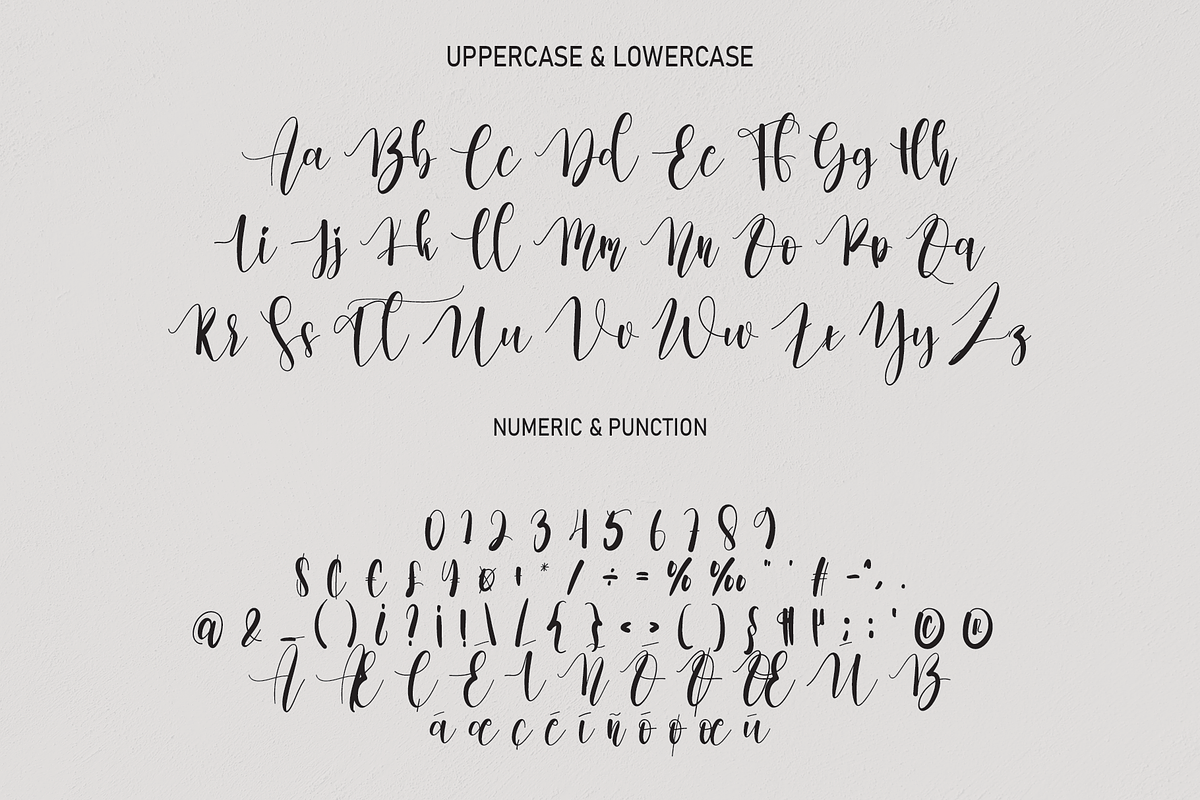 UPPERCASE & LOWERCASE
Aa Bb Cc Dd Ee Ff Gg Hh
Ii Jj Kk Ll Mm Nn Oo Pp Qq
Rr Ss Tt Uu Vv Ww Xx Yy Zz
NUMERIC & PUNCTION
0 1 2 3 4 5 6 7 8 9
$ ₵ € £ ¥ ¤ + * / ÷ = % ‰ " ' # - ^ , .
@ & _ ( ) ¿ ? ¡ ! \ / { } < > ( ) § ¶ µ ; : ' © ®
Á Æ Ç É Í Ñ Ó Ø Œ Ú ß
á æ ç é í ñ ó ø œ ú